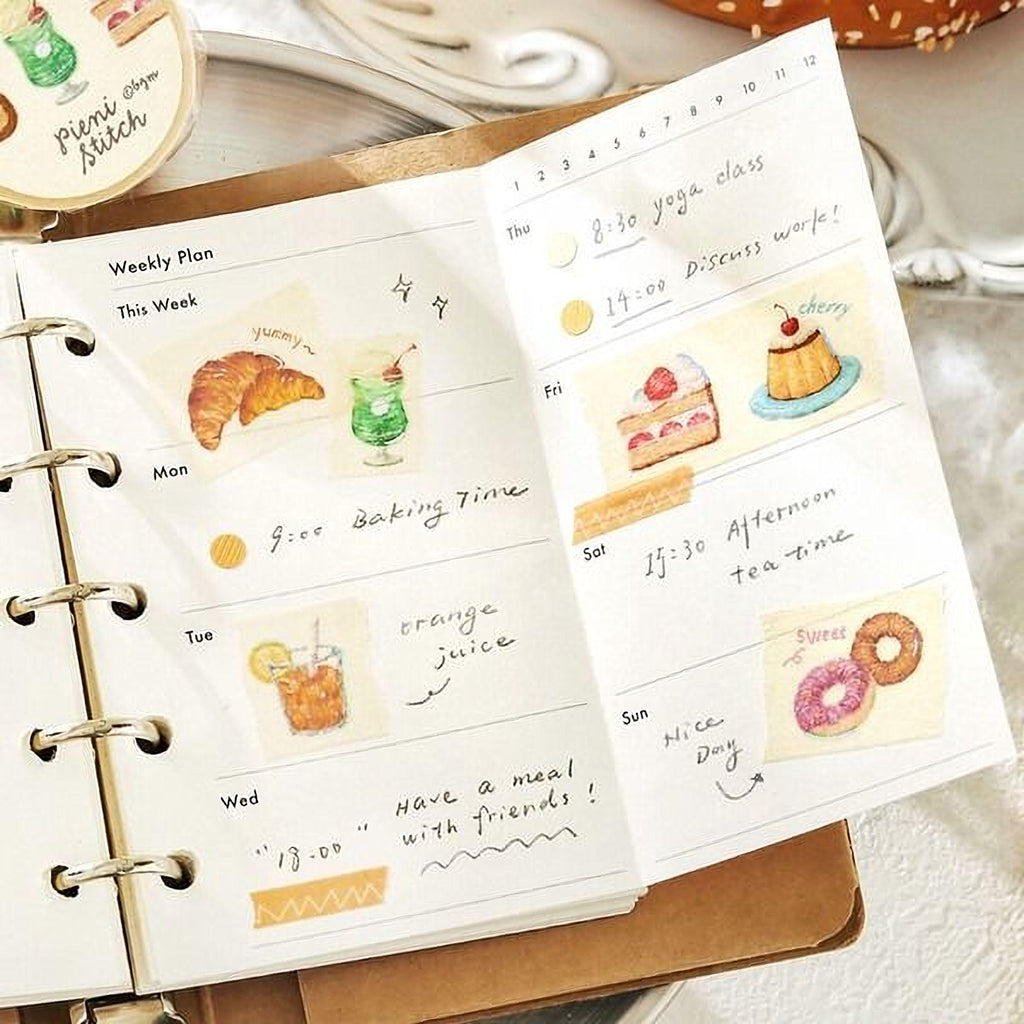 pieni
@bgm
Stitch
Weekly Plan
This Week
yummy~
Mon
9:00 Baking Time
Tue
orange
juice
Wed
"18:00"
Have a meal
with friends!
1 2 3 4 5 6 7 8 9 10 11 12
Thu
8:30 yoga class
14:00 Discuss work!
Fri
cherry
Sat
15:30 Afternoon
tea time
Sun
Nice
Day
sweet